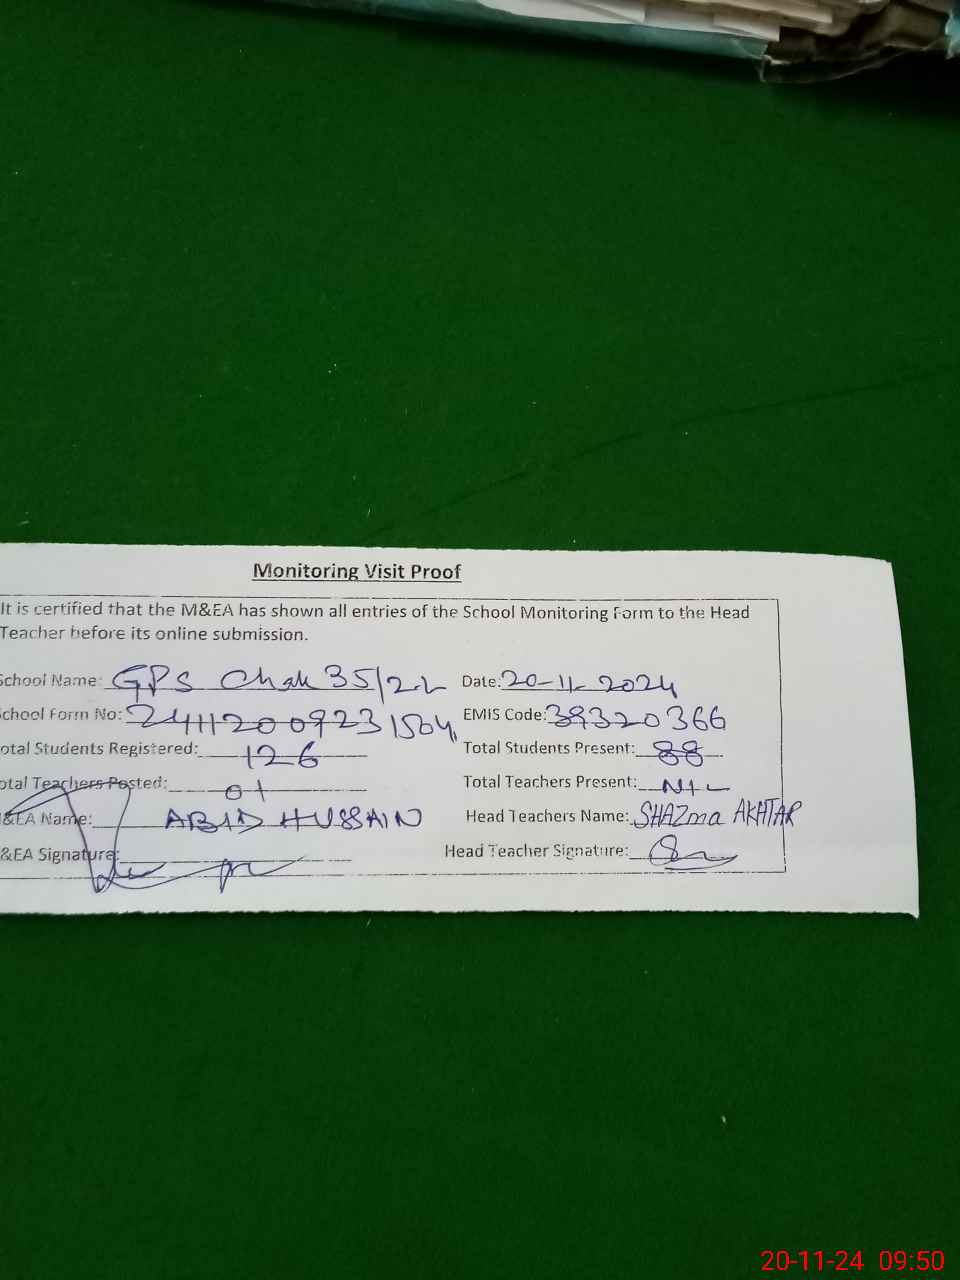 Monitoring Visit Proof
It is certified that the M&EA has shown all entries of the School Monitoring Form to the Head
Teacher before its online submission.
School Name: GPS Chak 35/2.L Date: 20-11-2024
School Form No: 24112009231504 EMIS Code: 39320366
otal Students Registered: 126 Total Students Present: 88
otal Teachers Posted: 01 Total Teachers Present: NIL
&EA Name: ABID HUSSAIN Head Teachers Name: SHAZma AKHTAR
&EA Signature: Head Teacher Signature:
20-11-24 09:50